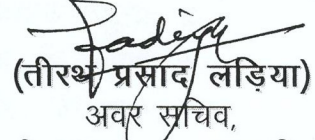 (तीरथ प्रसाद लड़िया)
अवर सचिव,